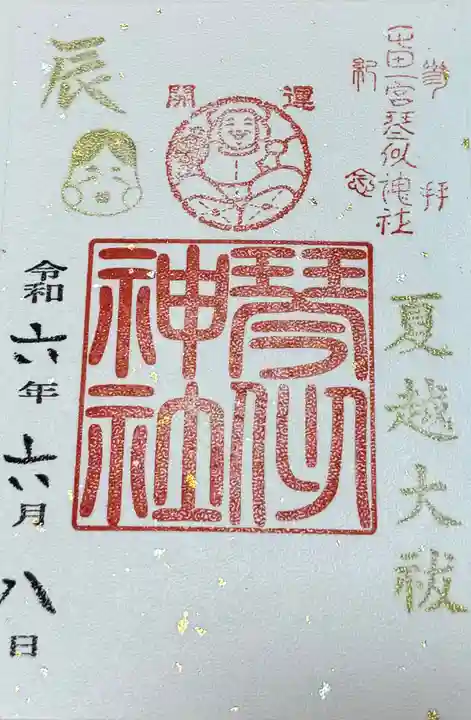 參拜
屯田一宮琴似神社
紀念
夏越大祓
開運
琴似
神社
辰
令和六年六月八日